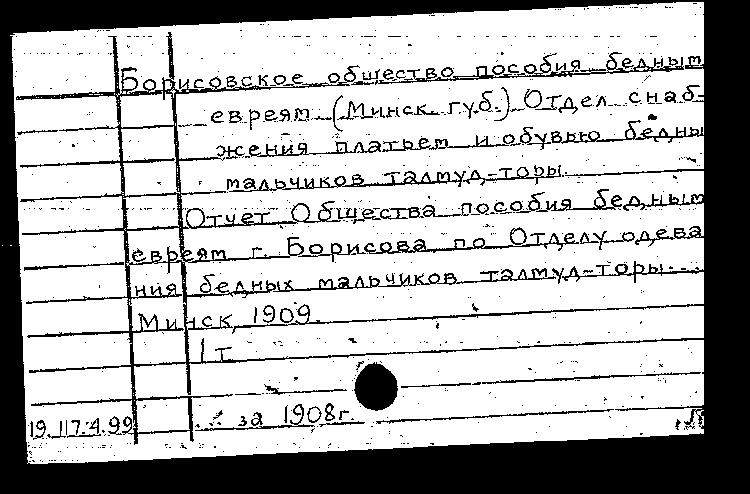 Борисовское общество пособия бедным
евреям (Минск. губ.) Отдел снаб-
жения платьем и обувью бедны
мальчиков талмуд-торы.
Отчет Общества пособия бедным
евреям г. Борисова по Отделу одева
ния бедных мальчиков талмуд-торы...
Минск, 1909.
1 т.
19.117.4.99 ... за 1908г.